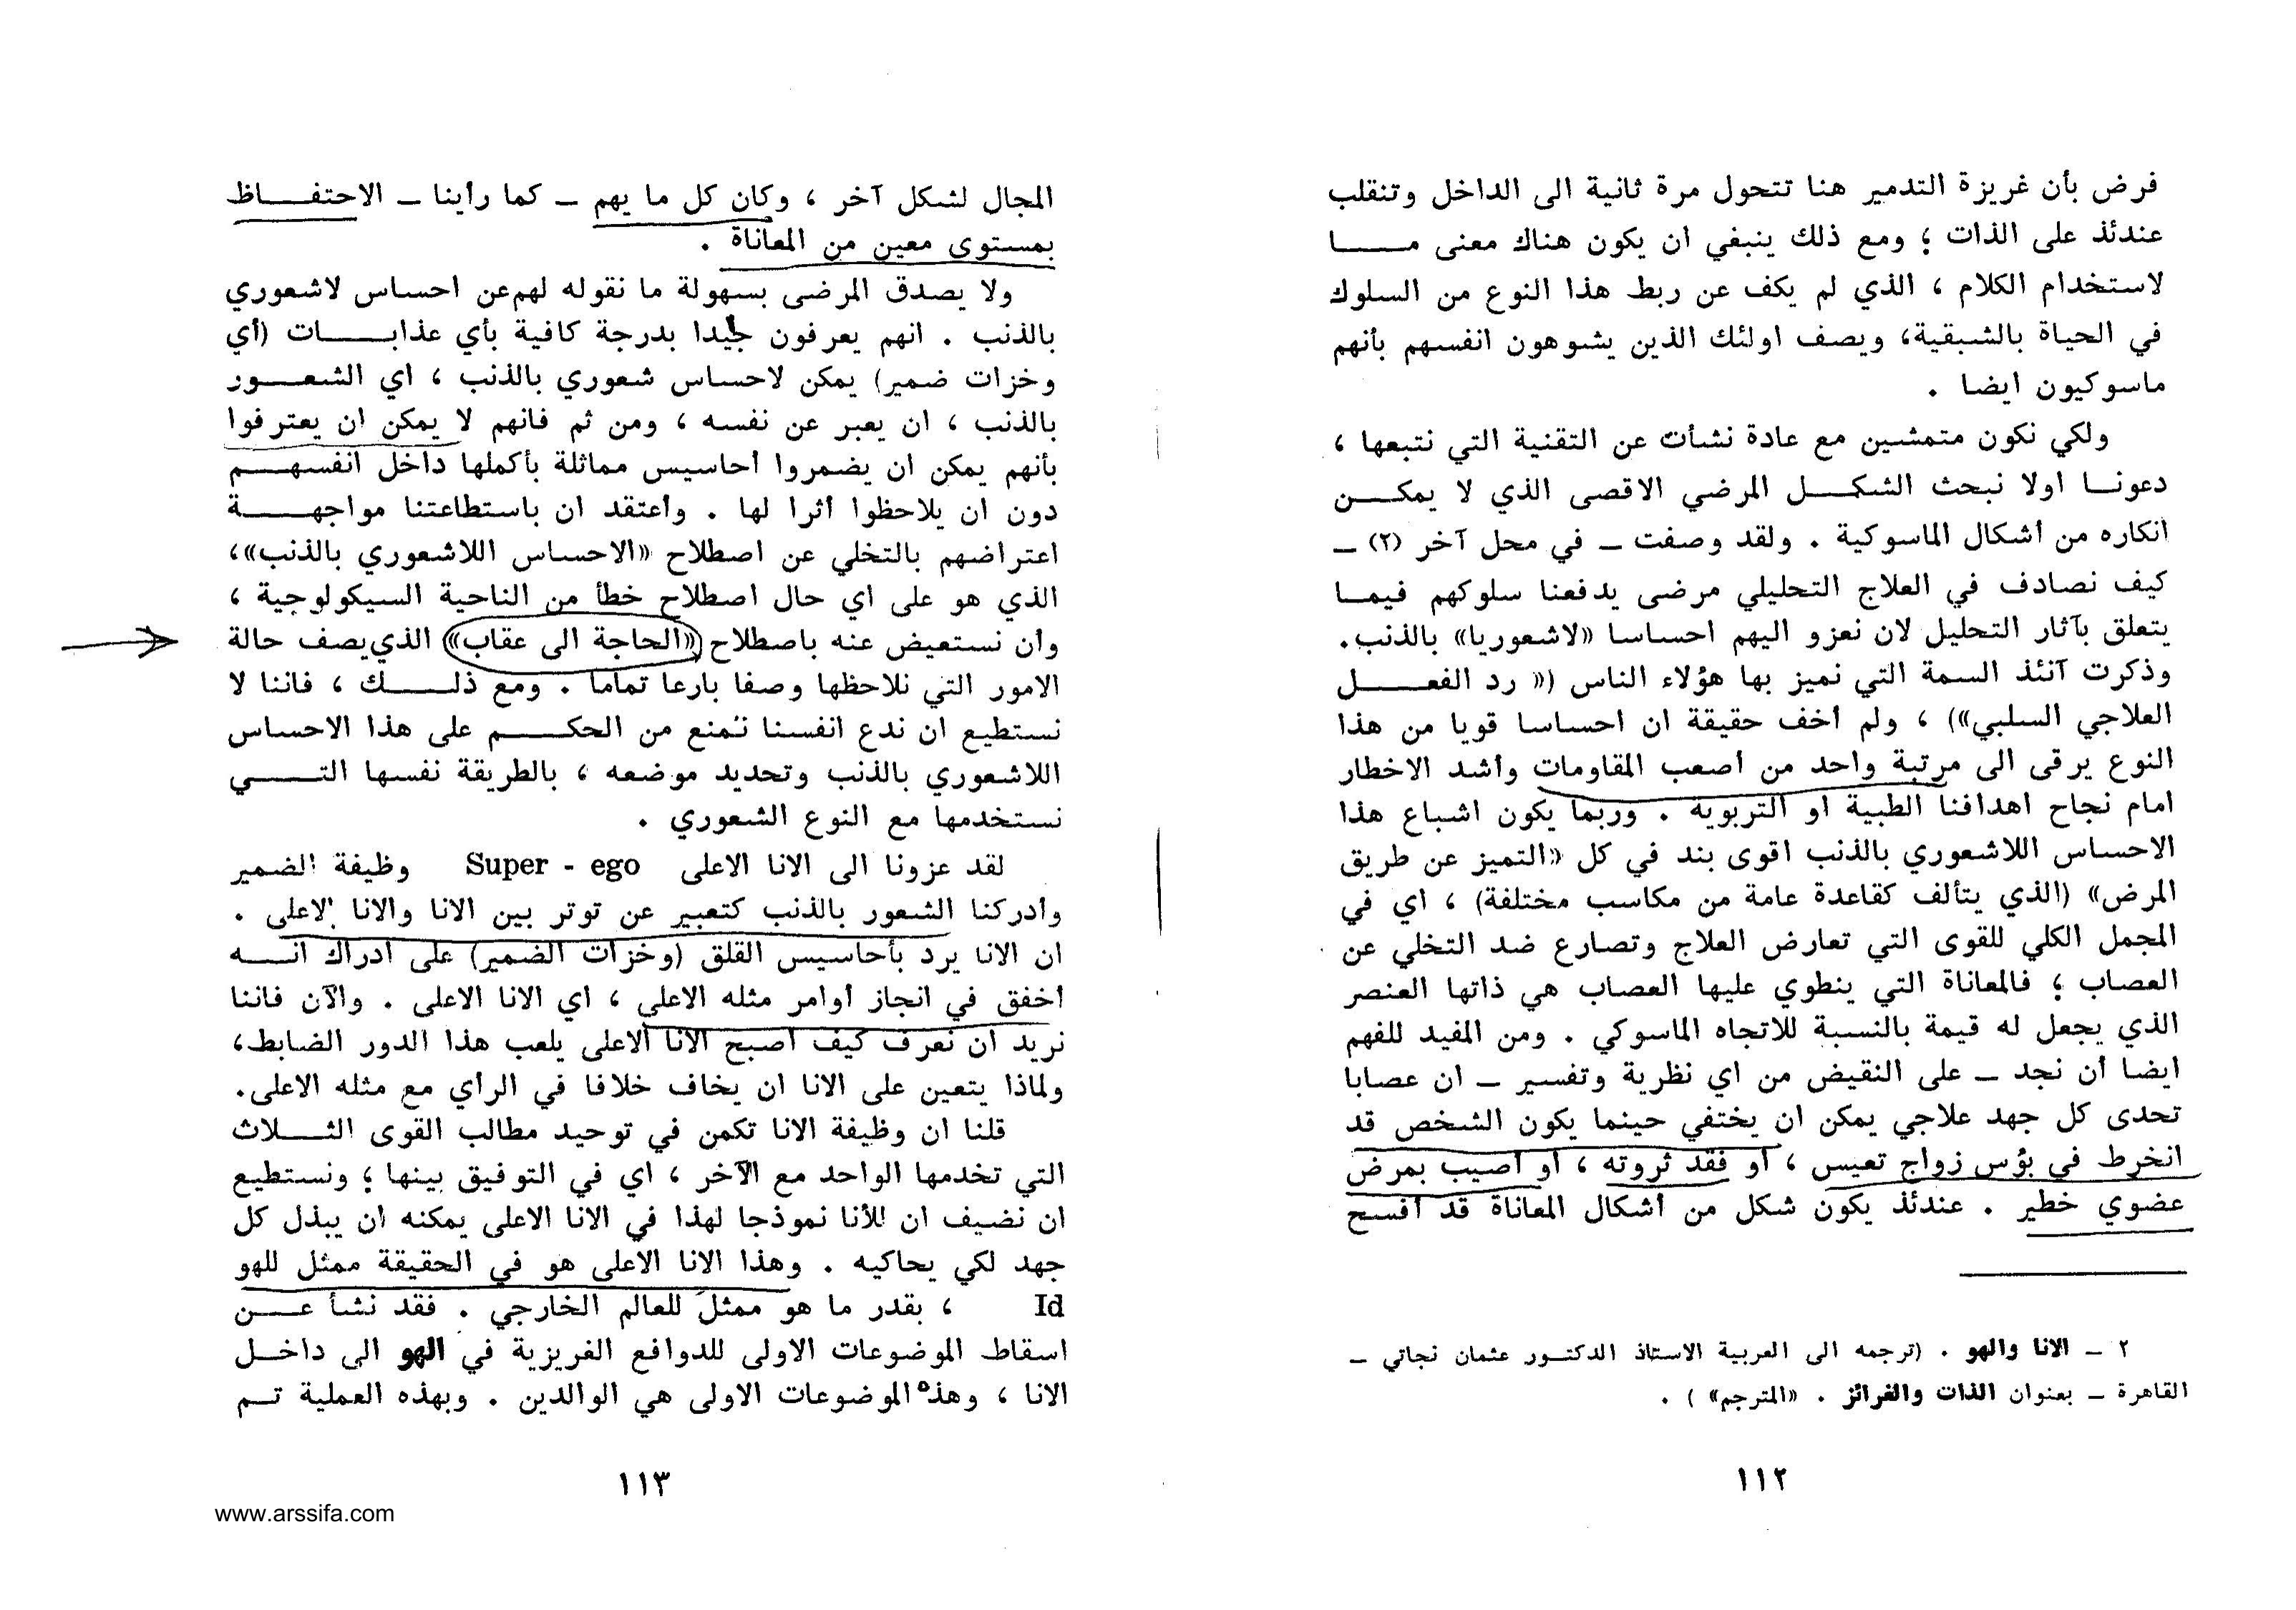 فرض بأن غريزة التدمير هنا تتحول مرة ثانية الى الداخل وتنقلب
عندئذ على الذات ؛ ومع ذلك ينبغي ان يكون هناك معنى مــا
لاستخدام الكلام ، الذي لم يكف عن ربط هذا النوع من السلوك
في الحياة بالشبقية، ويصف اولئك الذين يشوهون انفسهم بأنهم
ماسوكيون ايضا .
ولكي نكون متمشين مع عادة نشأت عن التقنية التي نتبعها ،
دعونــا اولا نبحث الشكــل المرضي الاقصى الذي لا يمكــن
انكاره من أشكال الماسوكية . ولقد وصفت – في محل آخر (٢) –
كيف نصادف في العلاج التحليلي مرضى يدفعنا سلوكهم فيمــا
يتعلق بآثار التحليل لان نعزو اليهم احساسا «لاشعوريا» بالذنب.
وذكرت آنئذ السمة التي نميز بها هؤلاء الناس (« رد الفعــل
العلاجي السلبي») ، ولم أخف حقيقة ان احساسا قويا من هذا
النوع يرقى الى مرتبة واحد من أصعب المقاومات وأشد الاخطار
امام نجاح اهدافنا الطبية او التربوية . وربما يكون اشباع هذا
الاحساس اللاشعوري بالذنب اقوى بند في كل «التميز عن طريق
المرض» (الذي يتألف كقاعدة عامة من مكاسب مختلفة) ، اي في
المجمل الكلي للقوى التي تعارض العلاج وتصارع ضد التخلي عن
العصاب ؛ فالمعاناة التي ينطوي عليها العصاب هي ذاتها العنصر
الذي يجعل له قيمة بالنسبة للاتجاه الماسوكي . ومن المفيد للفهم
ايضا أن نجد – على النقيض من اي نظرية وتفسير – ان عصابا
تحدى كل جهد علاجي يمكن ان يختفي حينما يكون الشخص قد
انخرط في بؤس زواج تعيس ، او فقد ثروته ، او أصيب بمرض
عضوي خطير . عندئذ يكون شكل من أشكال المعاناة قد أفسح
٢ – الانا والهو . (ترجمه الى العربية الاستاذ الدكتــور عثمان نجاتي –
القاهرة – بعنوان الذات والغرائز . «المترجم» ) .
١١٢
المجال لشكل آخر ، وكان كل ما يهم – كما رأينا – الاحتفــاظ
بمستوى معين من المعاناة .
ولا يصدق المرضى بسهولة ما نقوله لهم عن احساس لاشعوري
بالذنب . انهم يعرفون جيدا بدرجة كافية بأي عذابــات (أي
وخزات ضمير) يمكن لاحساس شعوري بالذنب ، اي الشعــور
بالذنب ، ان يعبر عن نفسه ، ومن ثم فانهم لا يمكن ان يعترفوا
بأنهم يمكن ان يضمروا أحاسيس مماثلة بأكملها داخل انفسهــم
دون ان يلاحظوا أثرا لها . وأعتقد ان باستطاعتنا مواجهــة
اعتراضهم بالتخلي عن اصطلاح «الاحساس اللاشعوري بالذنب»،
الذي هو على اي حال اصطلاح خطأ من الناحية السيكولوجية ،
وأن نستعيض عنه باصطلاح «الحاجة الى عقاب» الذي يصف حالة
الامور التي نلاحظها وصفا بارعا تماما . ومع ذلــك ، فاننا لا
نستطيع ان ندع انفسنا تمنع من الحكــم على هذا الاحساس
اللاشعوري بالذنب وتحديد موضعه ، بالطريقة نفسها التــي
نستخدمها مع النوع الشعوري .
لقد عزونا الى الانا الاعلى Super - ego وظيفة الضمير
وأدركنا الشعور بالذنب كتعبير عن توتر بين الانا والانا الاعلى .
ان الانا يرد بأحاسيس القلق (وخزات الضمير) على ادراك انــه
أخفق في انجاز أوامر مثله الاعلى ، اي الانا الاعلى . والآن فاننا
نريد ان نعرف كيف أصبح الانا الاعلى يلعب هذا الدور الضابط،
ولماذا يتعين على الانا ان يخاف خلافا في الرأي مع مثله الاعلى.
قلنا ان وظيفة الانا تكمن في توحيد مطالب القوى الثــلاث
التي تخدمها الواحد مع الآخر ، اي في التوفيق بينها ؛ ونستطيع
ان نضيف ان للأنا نموذجا لهذا في الانا الاعلى يمكنه ان يبذل كل
جهد لكي يحاكيه . وهذا الانا الاعلى هو في الحقيقة ممثل للهو
Id ، بقدر ما هو ممثل للعالم الخارجي . فقد نشأ عــن
اسقاط الموضوعات الاولى للدوافع الغريزية في الهو الى داخــل
الانا ، وهذه الموضوعات الاولى هي الوالدين . وبهذه العملية تــم
١١٣
www.arssifa.com